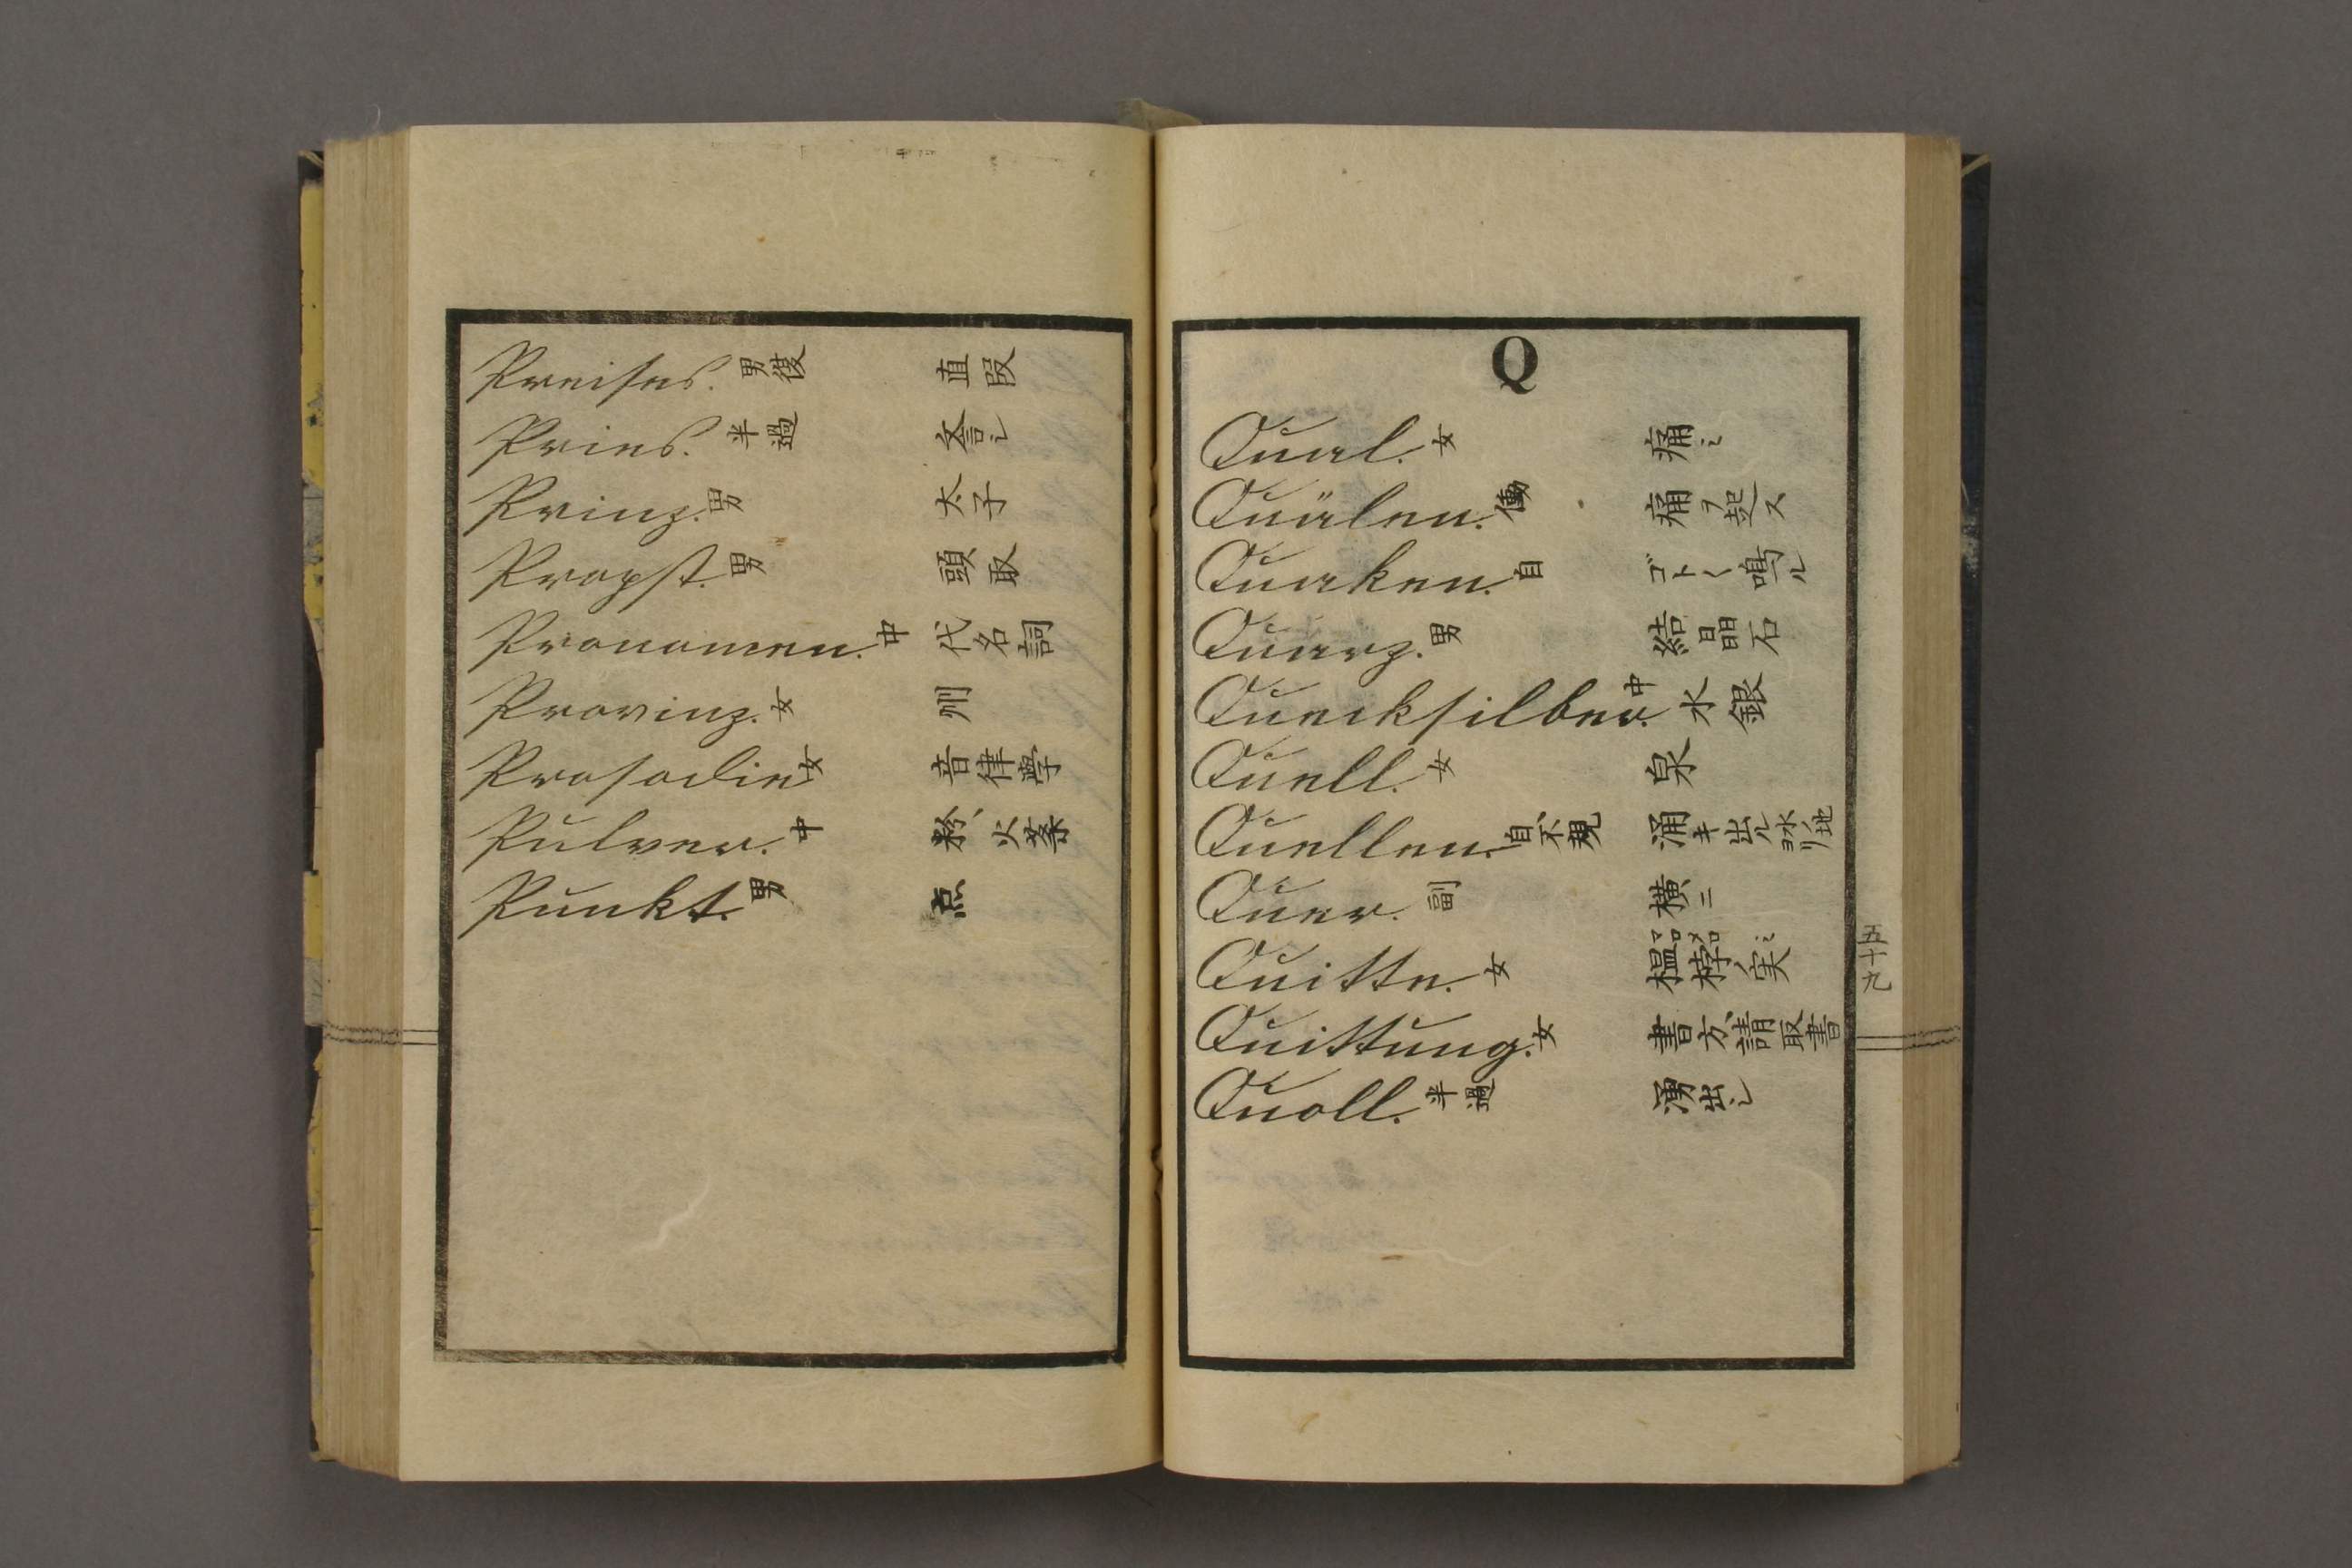 Preises. 男復 直段
Pries. 半過
Prinz. 男 太子
Propst. 男 頭取
Pronomen. 中 代名詞
Provinz. 女 州
Prosodie 女 音律學
Pulver. 中 粉、火薬
Punkt. 男 点
Q
Qual. 女 痛ミ
Quälen. 働 痛ヲ起ス
Quaken. 自 ゴト〱鳴ル
Quarz. 男 結晶石
Quecksilber. 中 水銀
Quell. 女 泉
Quellen. 自不規 涌キ出ル水ノ地ヨリ
Quer. 副 横ニ
Quitte. 女 榲桲ノ実 マルメロ
Quittung. 女 書方、請取書
Quoll. 半過 湧出シ
五十九